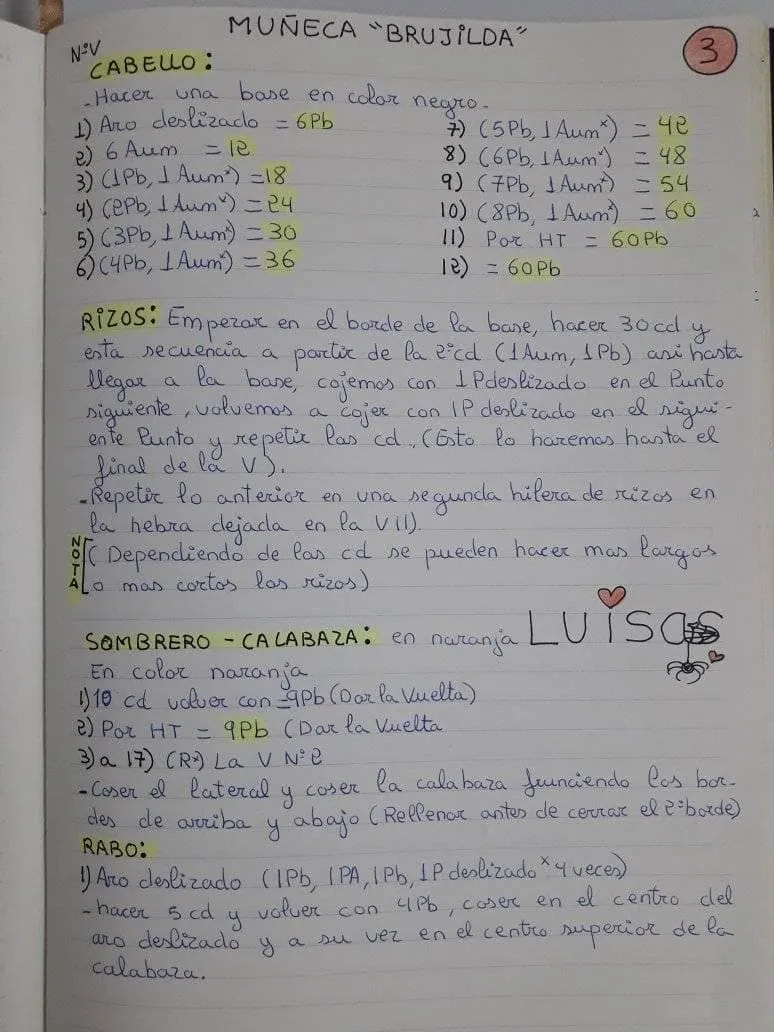 MUÑECA "BRUJiLDA"
3
NºV
CABELLO:
-Hacer una base en color negro.
1) Aro deslizado = 6Pb
2) 6 Aum = 12
3) (1Pb, 1 Aumˣ) = 18
4) (2Pb, 1 Aumˣ) = 24
5) (3Pb, 1 Aumˣ) = 30
6) (4Pb, 1 Aumˣ) = 36
7) (5Pb, 1 Aumˣ) = 42
8) (6Pb, 1 Aumˣ) = 48
9) (7Pb, 1 Aumˣ) = 54
10) (8Pb, 1 Aumˣ) = 60
11) Por HT = 60Pb
12) = 60Pb
RiZOS: Empezar en el borde de la base, hacer 30cd y
esta secuencia a partir de la 2ªcd (1Aum, 1Pb) asi hasta
llegar a la base, cojemos con 1Pdeslizado en el Punto
siguiente, volvemos a cojer con 1P deslizado en el sigui-
ente Punto y repetir las cd. (Esto lo haremos hasta el
final de la V).
-Repetir lo anterior en una segunda hilera de rizos en
la hebra dejada en la V11).
NOTA
(Dependiendo de las cd se pueden hacer mas largos
o mas cortos los rizos)
SOMBRERO - CALABAZA: en naranja
LUiSOS
En color naranja
1) 10 cd volver con =9Pb (Dar la Vuelta)
2) Por HT = 9Pb (Dar la Vuelta
3) a 17) (Rˣ) La V Nº2
-Coser el lateral y coser la calabaza frunciendo los bor-
des de arriba y abajo (Rellenar antes de cerrar el 2ºborde)
RABO:
1) Aro deslizado (1Pb, 1PA, 1Pb, 1P deslizado ˣ 4 veces)
-hacer 5 cd y volver con 4Pb, coser en el centro del
aro deslizado y a su vez en el centro superior de la
calabaza.